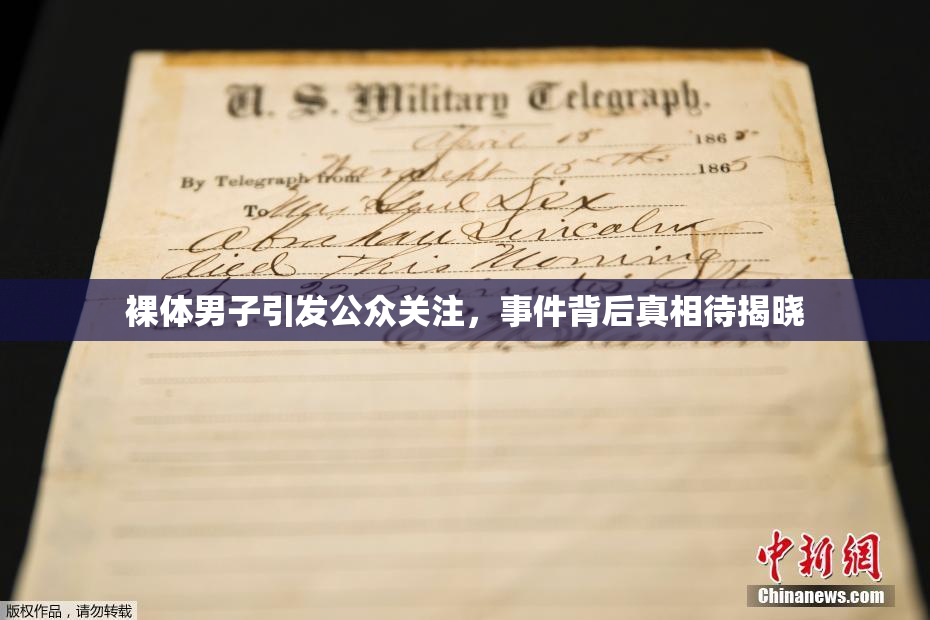 U. S. Military Telegraph.
April 15 1865
By Telegraph from War Dept 15th 1865
To Maj Genl Dix
Abraham Lincoln
died This Morning
at 22 minutes after
裸体男子引发公众关注，事件背后真相待揭晓
中新網
Chinanews.com
版权作品，请勿转载